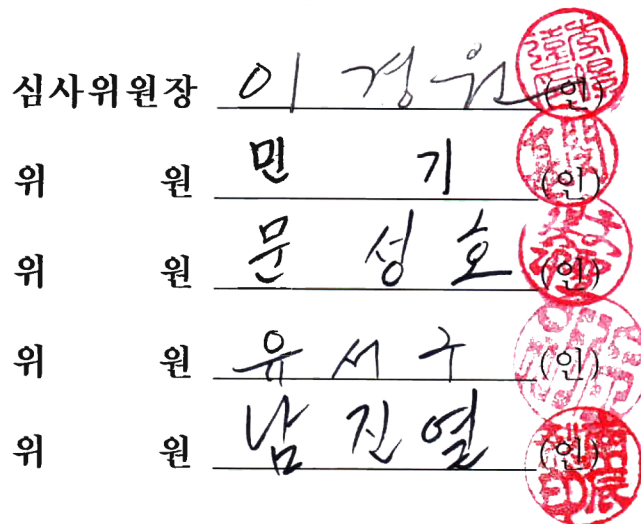 심사위원장 이 경 원 (인)
위 원 민 기 (인)
위 원 문 성 호 (인)
위 원 유 서 구 (인)
위 원 남 진 열 (인)